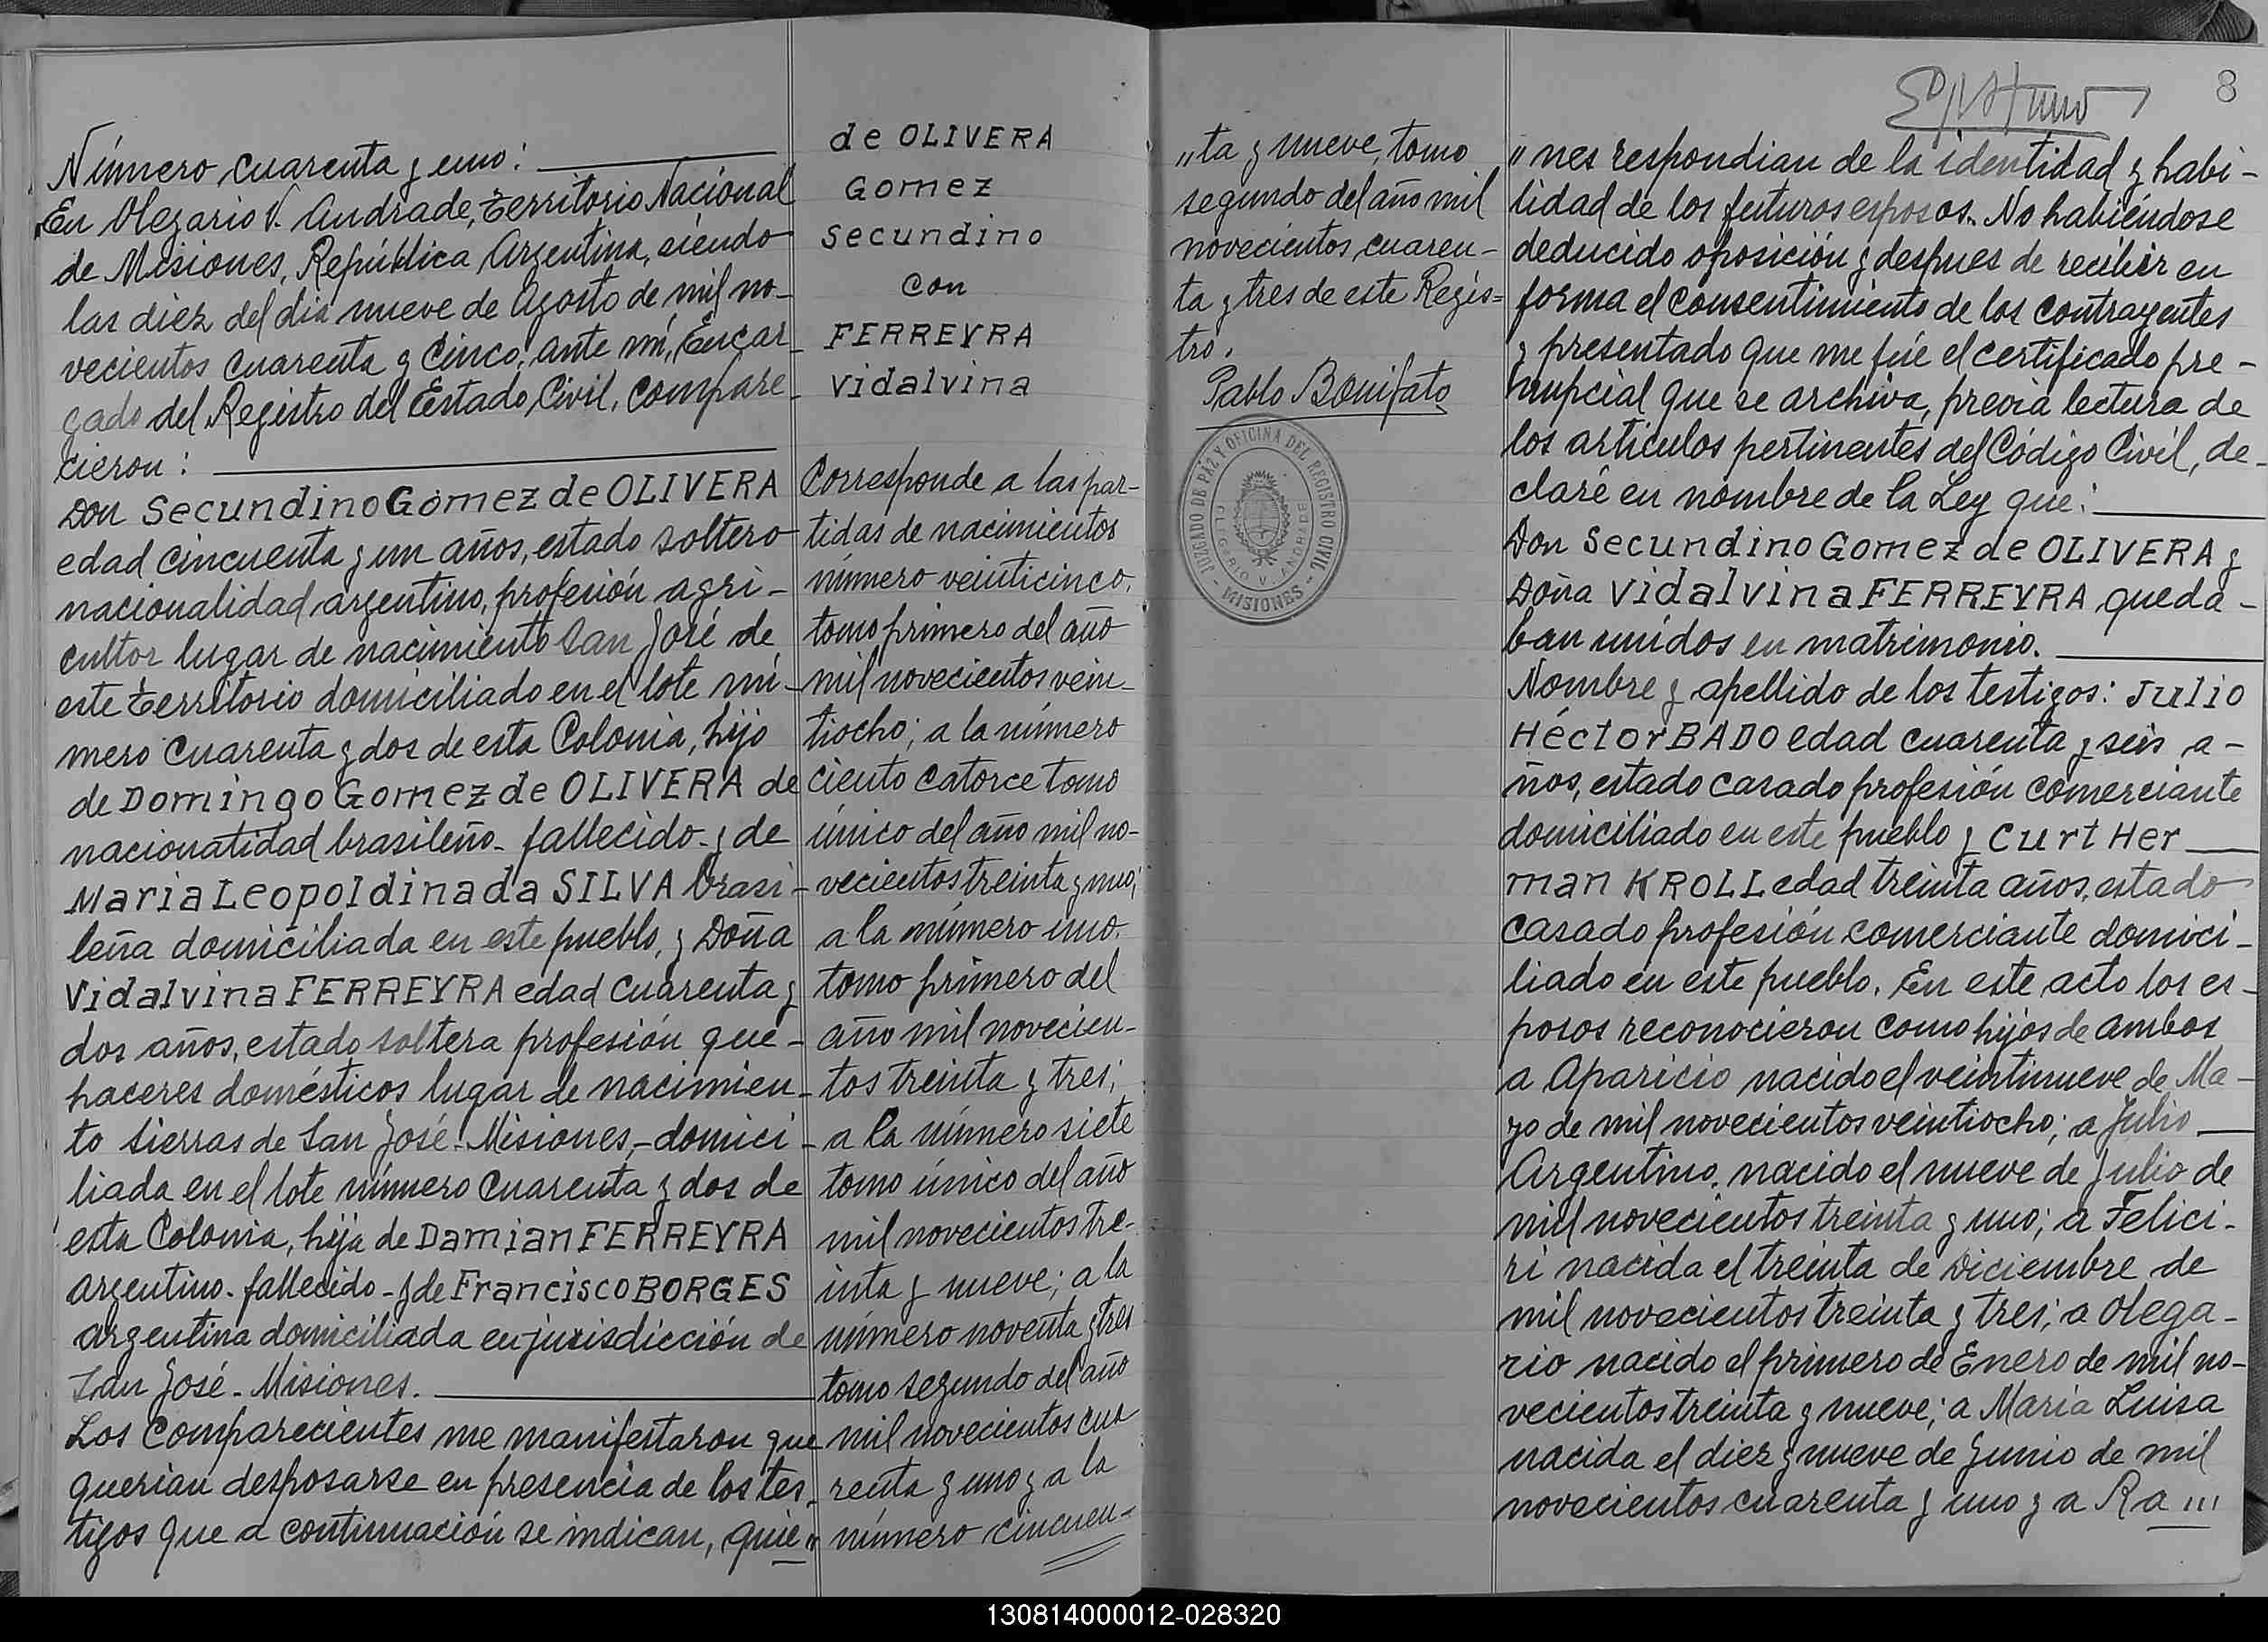 Número cuarenta y uno:
En Olegario V. Andrade, Territorio Nacional
de Misiones, República Argentina, siendo
las diez del dia nueve de Agosto de mil no-
vecientos cuarenta y cinco, ante mí, Encar-
gado del Registro del Estado Civil, compare-
cieron:
Don Secundino Gomez de OLIVERA
edad cincuenta y un años, estado soltero
nacionalidad argentino, profesión agri-
cultor lugar de nacimiento San José de
este territorio domiciliado en el lote nú-
mero cuarenta y dos de esta Colonia, hijo
de Domingo Gomez de OLIVERA de
nacionalidad brasileño - fallecido - y de
Maria Leopoldina da SILVA brasi-
leña domiciliada en este pueblo, y Doña
Vidalvina FERREYRA edad cuarenta y
dos años, estado soltera profesión que-
haceres domésticos lugar de nacimien-
to sierras de San José - Misiones, - domici-
liada en el lote número cuarenta y dos de
esta Colonia, hija de Damian FERREYRA
argentino - fallecido - y de Francisco BORGES
argentina domiciliada en jurisdicción de
San José - Misiones.
Los comparecientes me manifestaron que
querian desposarse en presencia de los tes-
tigos que a continuación se indican, quie"
de OLIVERA
Gomez
Secundino
con
FERREYRA
Vidalvina
Corresponde a las par-
tidas de nacimientos
número veinticinco,
tomo primero del año
mil novecientos vein-
tiocho; a la número
ciento catorce tomo
único del año mil no-
vecientos treinta y uno;
a la número uno,
tomo primero del
año mil novecien-
tos treinta y tres;
a la número siete
tomo único del año
mil novecientos tre-
inta y nueve; a la
número noventa y tres
tomo segundo del año
mil novecientos cua
renta y uno y a la
número cincuen-
"ta y nueve, tomo
segundo del año mil
novecientos cuaren-
ta y tres de este Regis=
tro.
Pablo Bonifato
JUZGADO DE PAZ Y OFICINA DEL REGISTRO CIVIL
OLEGARIO V. ANDRADE
- MISIONES -
8
"nes respondian de la identidad y habi-
lidad de los futuros esposos. No habiéndose
deducido oposición y despues de recibir en
forma el consentimiento de los contrayentes
y presentado que me fúe el certificado pre-
nupcial que se archiva, previa lectura de
los artículos pertinentes del Código Civil, de-
claré en nombre de la Ley que:
Don Secundino Gomez de OLIVERA y
Doña Vidalvina FERREYRA queda-
ban unidos en matrimonio.
Nombre y apellido de los testigos: Julio
Héctor BADO edad cuarenta y seis a-
ños, estado casado profesión comerciante
domiciliado en este pueblo y Curt Her
man KROLL edad treinta años, estado
casado profesión comerciante domici-
liado en este pueblo. En este acto los es-
posos reconocieron como hijos de ambos
a Aparicio nacido el veintinueve de Ma-
yo de mil novecientos veintiocho; a Julio
Argentino, nacido el nueve de Julio de
mil novecientos treinta y uno; a Felici-
ri nacida el treinta de Diciembre de
mil novecientos treinta y tres; a Olega-
rio nacido el primero de Enero de mil no-
vecientos treinta y nueve; a Maria Luisa
nacida el diez y nueve de Junio de mil
novecientos cuarenta y uno y a Ra'''
130814000012-028320